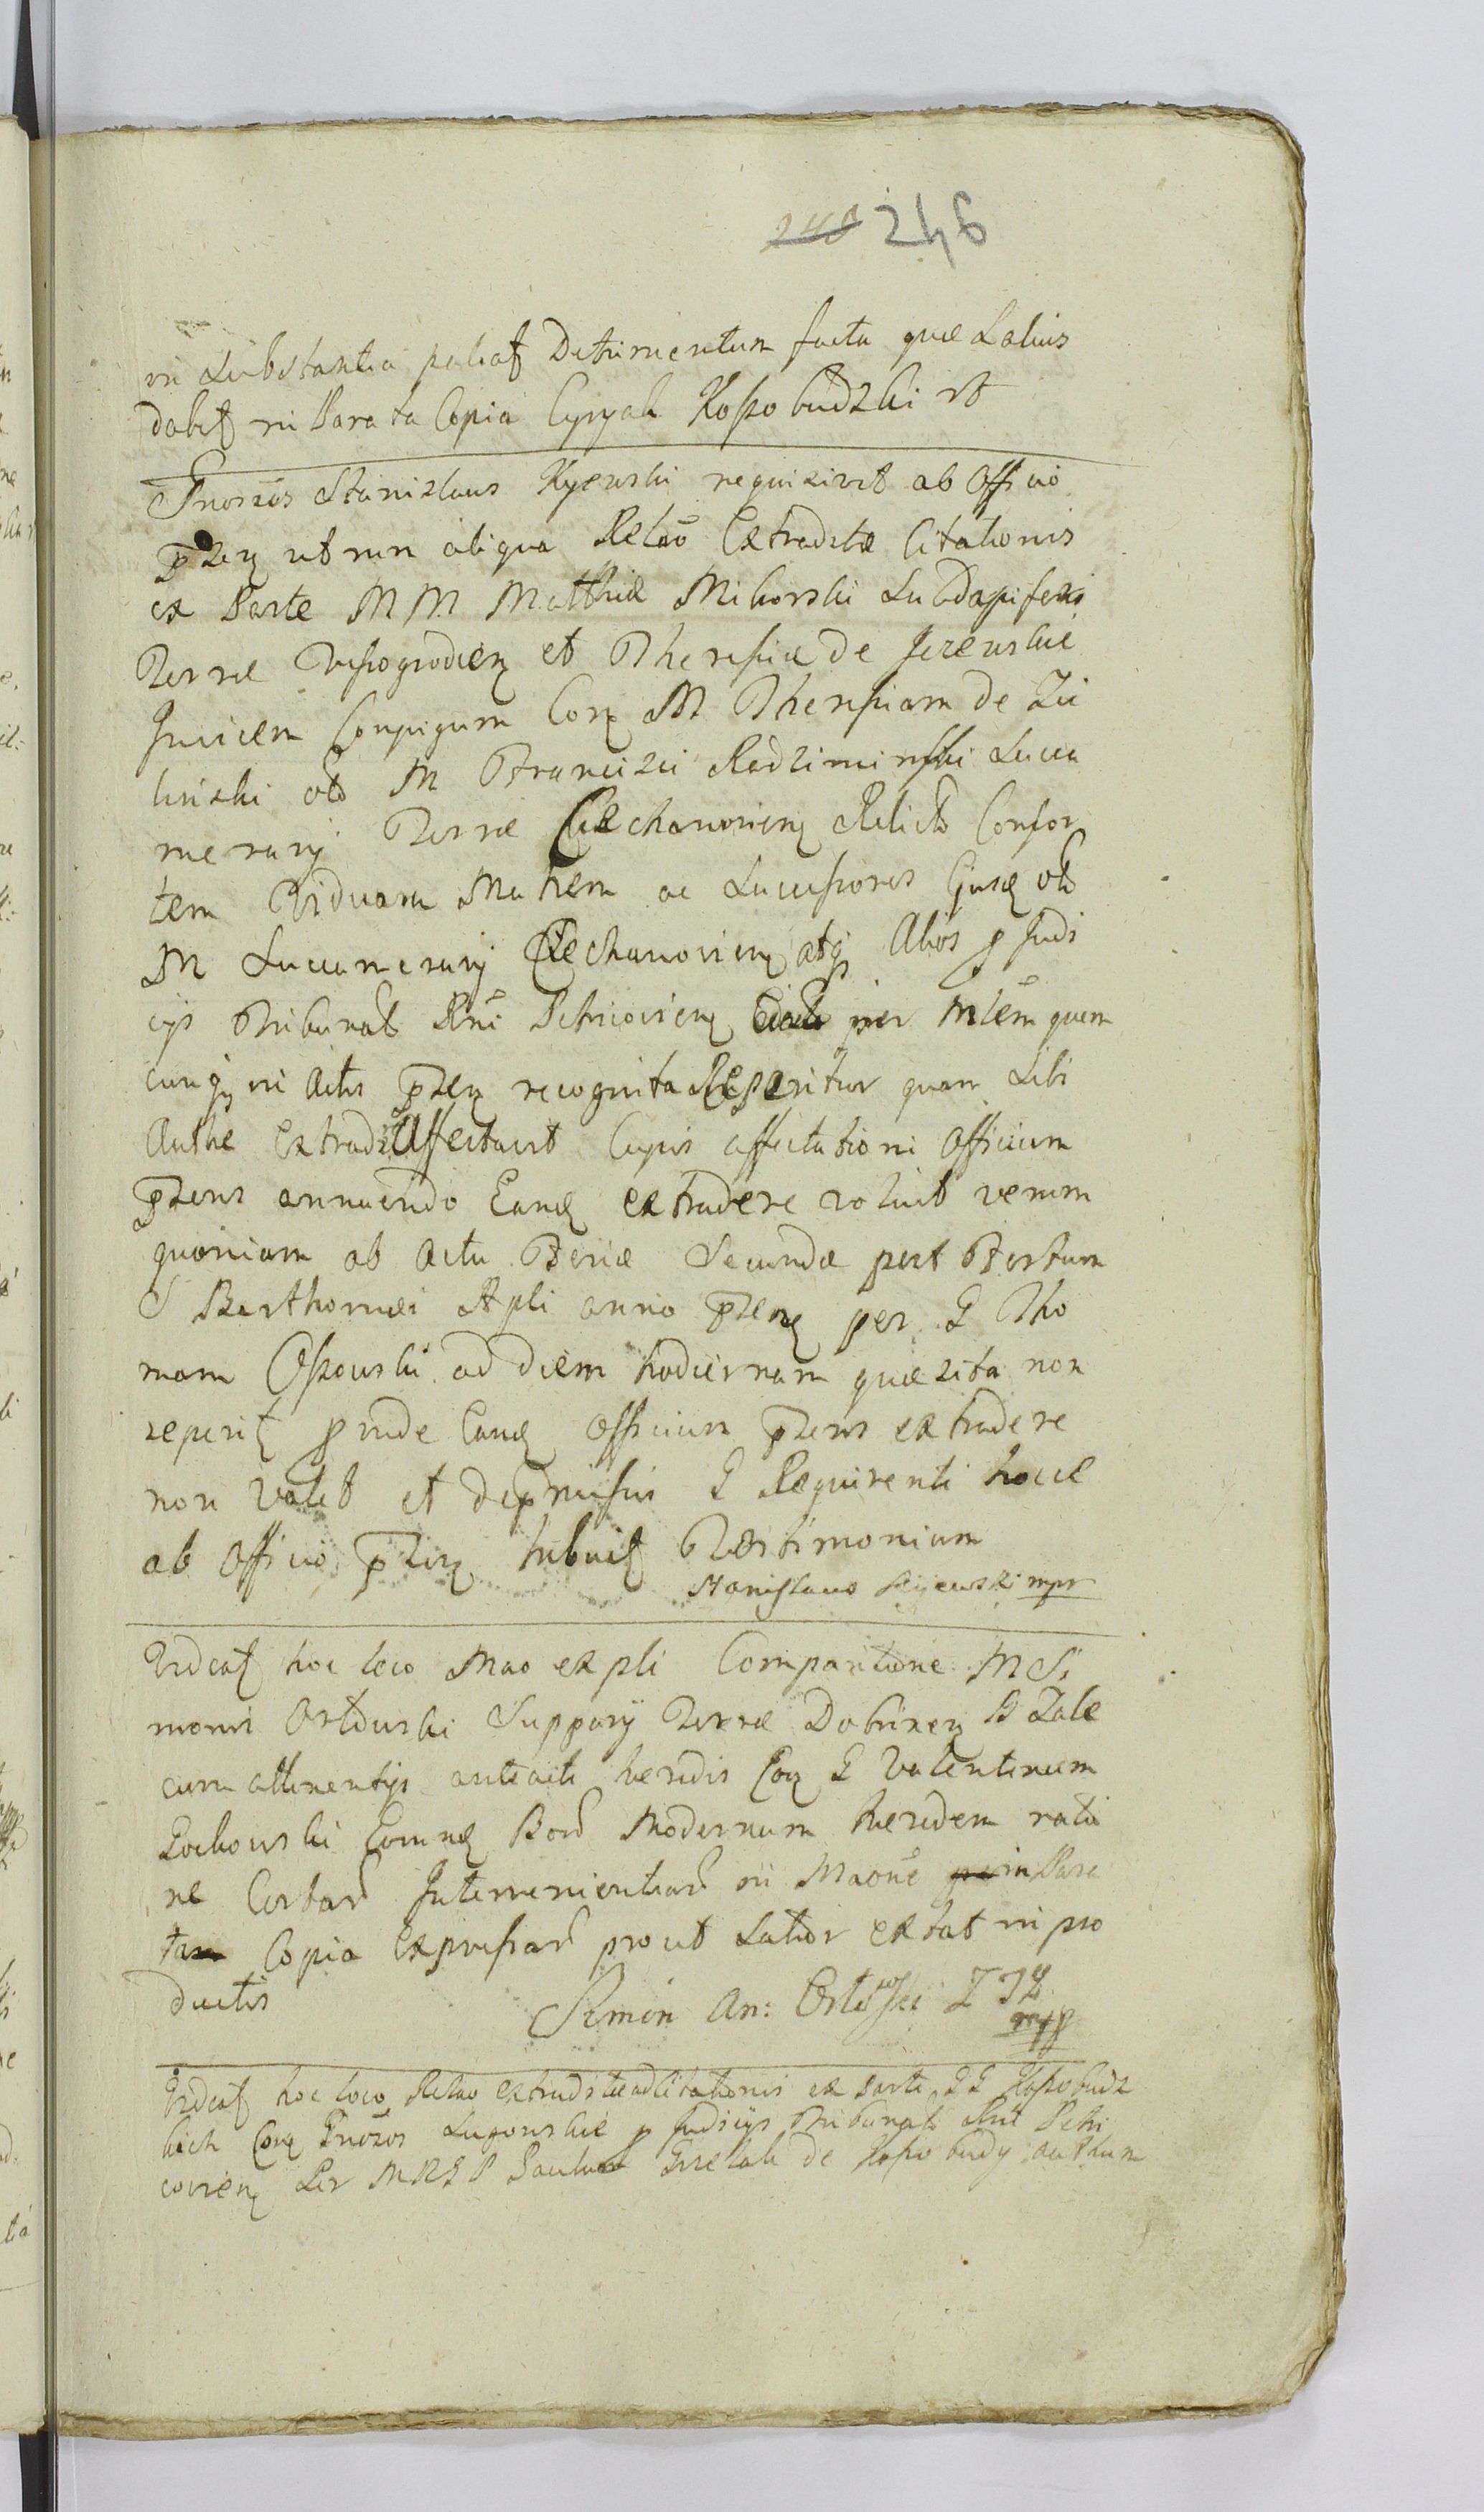 246
in substantia patiat Detrimentum facta quæ Latius
dabit in Parata Copia Cyryak Kossobudzki vt
Gnosus Stanislaus Kyewski requisivit ab Officio
pnti utrum aliqua Relaō Extraditæ Citationis
ex Parte MM Matthiæ Mikorski Subdapiferi
Terræ Vissogrodien et Theresiæ de Jezewskie
Invicem Conjugum Con M Theresiam de Zie
linski olo M Francisci Radziminski Succa
merarij Terræ Ciechanovien Relict Consor
tem Viduam Matrem ac Successores Ejusd olo
M Succamerarij Ciechanovien atq Alios p Judi
cijs Tribunal Rni Petricovien per Mlem quem
cunq in Actis pnti recognita Reperitur quam Sibi
Authe Extradi Affectavit Cujus affectationi Officium
pnens annuendo Eand extradere voluit verum
quoniam ab Actu Feriæ Secundæ post Festum
S Barthomei Apli anno pnti per G Tho
mam Ossowski ad diem hodiernam quæsita non
reperit proinde Eand Officium pnens extradere
non valet et depræmissis G Requirenti hocce
ab Officio pnti tribuit Testimonium
Stanislaus Kyiewski mpr
Videat hoc loco Mao expli Comparitione M Si
monis Ortowski Suppary Terræ Dobrinen B Zale
cum attinentijs anteacti heredis Con G Valentinum
Gockowski Eorund Bonor Modernum heredem ratio
ne Certar Intervenientiar in Maone in Para
ta Copia Expressar prout Latior extat in pro
ductis
Simon An: Ortowski
mpp
Videat hoc loco Relao extraditæ adcitationis ex parte GG Kossobudz
kich Con Gnosos Lugowskie p Judicijs Tribunal Rni Petri
covien Per MRGD Paulum Grzelak de Kossobudy authum